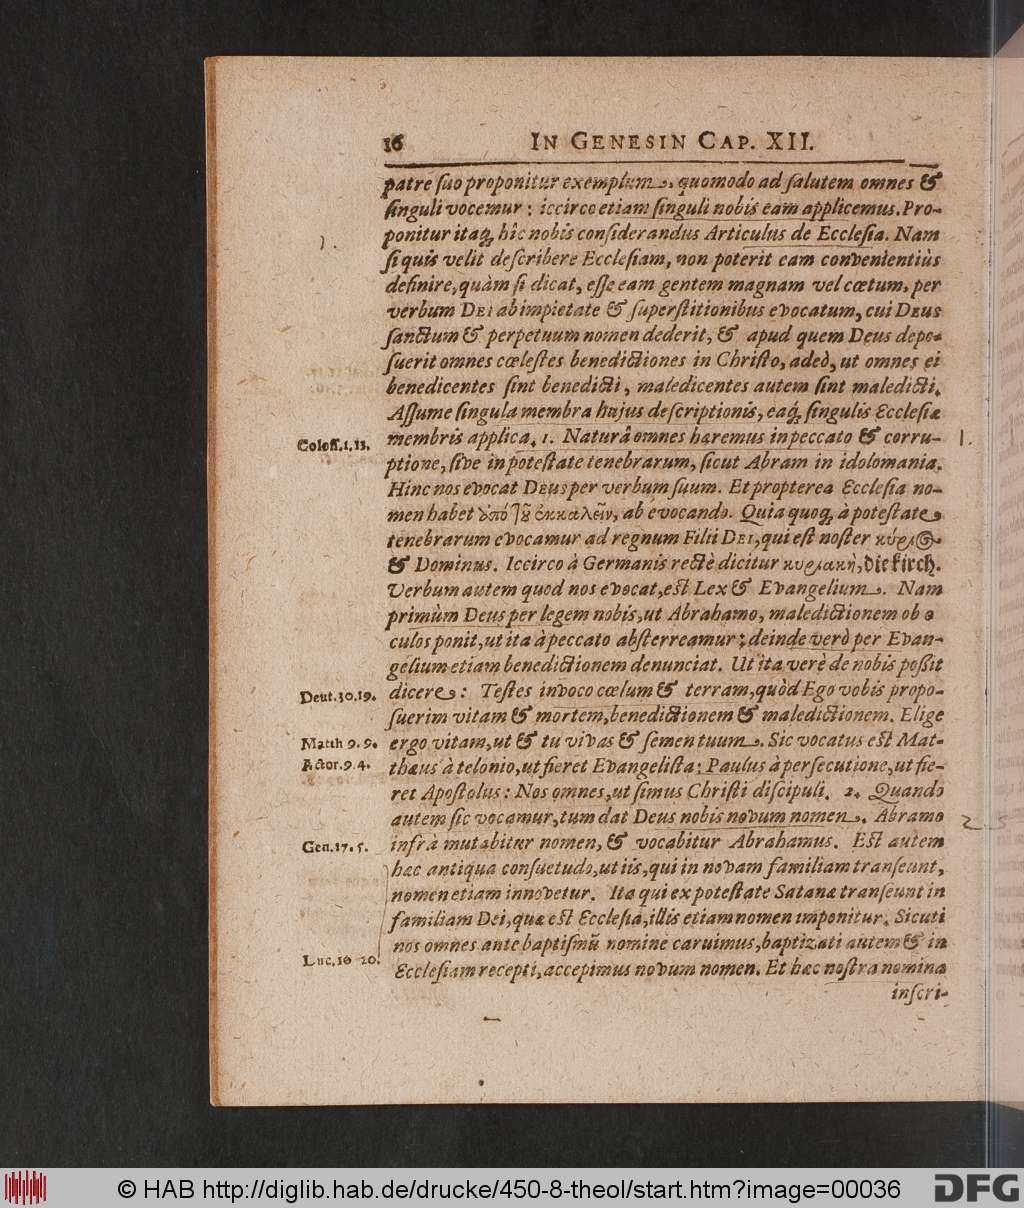 16 IN GENESIN CAP. XII.
patre ſuo proponitur exemplum, quomodo ad ſalutem omnes &
ſinguli vocemur: iccirco etiam ſinguli nobis eam applicemus. Pro-
ponitur itaq; hîc nobis conſiderandus Articulus de Eccleſia. Nam
ſi quis velit deſcribere Eccleſiam, non poterit eam convenientiùs
definire, quàm ſi dicat, eſſe eam gentem magnam vel cœtum, per
verbum DEI ab impietate & ſuperſtitionibus evocatum, cui DEUS
ſanctum & perpetuum nomen dederit, & apud quem Deus depo-
ſuerit omnes cœleſtes benedictiones in Chriſto, adeò, ut omnes ei
benedicentes ſint benedicti, maledicentes autem ſint maledicti.
Aſſume ſingula membra hujus deſcriptionis, eaq; ſingulis Eccleſiæ
Coloſſ. 1, 13. membris applica. 1. Naturâ omnes hæremus in peccato & corru- 1.
ptione, ſive in poteſtate tenebrarum, ſicut Abram in idolomania.
Hinc nos evocat DEUS per verbum ſuum. Et propterea Eccleſia no-
men habet ἀπό τȣ͂ ἐκκαλεῖν, ab evocando. Quia quoq; à poteſtate
tenebrarum evocamur ad regnum Filii DEI, qui eſt noſter κύρι@
& Dominus. Iccirco à Germanis rectè dicitur κυριακὴ, die kirch.
Verbum autem quod nos evocat, eſt Lex & Evangelium. Nam
primùm Deus per legem nobis, ut Abrahamo, maledictionem ob o
culos ponit, ut ita à peccato abſterreamur; deinde verò per Evan-
gelium etiam benedictionem denunciat. Ut ita verè de nobis poßit
Deut. 30. 19. dicere: Teſtes invoco cœlum & terram, quòd Ego vobis propo-
ſuerim vitam & mortem, benedictionem & maledictionem. Elige
Matth 9. 9. ergo vitam, ut & tu vivas & ſemen tuum. Sic vocatus eſt Mat-
Actor. 9 4. thæus à telonio, ut fieret Evangeliſta: Paulus à perſecutione, ut fie-
ret Apoſtolus: Nos omnes, ut ſimus Chriſti diſcipuli. 2. Quando
autem ſic vocamur, tum dat Deus nobis novum nomen. Abramo 2
Gen. 17. 5. infrà mutabitur nomen, & vocabitur Abrahamus. Eſt autem
hæc antiqua conſuetudo, ut iis, qui in novam familiam tranſeunt,
nomen etiam innovetur. Ita qui ex poteſtate Satanæ tranſeunt in
familiam Dei, quæ eſt Eccleſia, illis etiam nomen imponitur. Sicuti
nos omnes ante baptiſmũ nomine caruimus, baptizati autem & in
Luc. 10 20. Eccleſiam recepti, accepimus novum nomen. Et hæc noſtra nomina
inſcri-
© HAB http://diglib.hab.de/drucke/450-8-theol/start.htm?image=00036 DFG